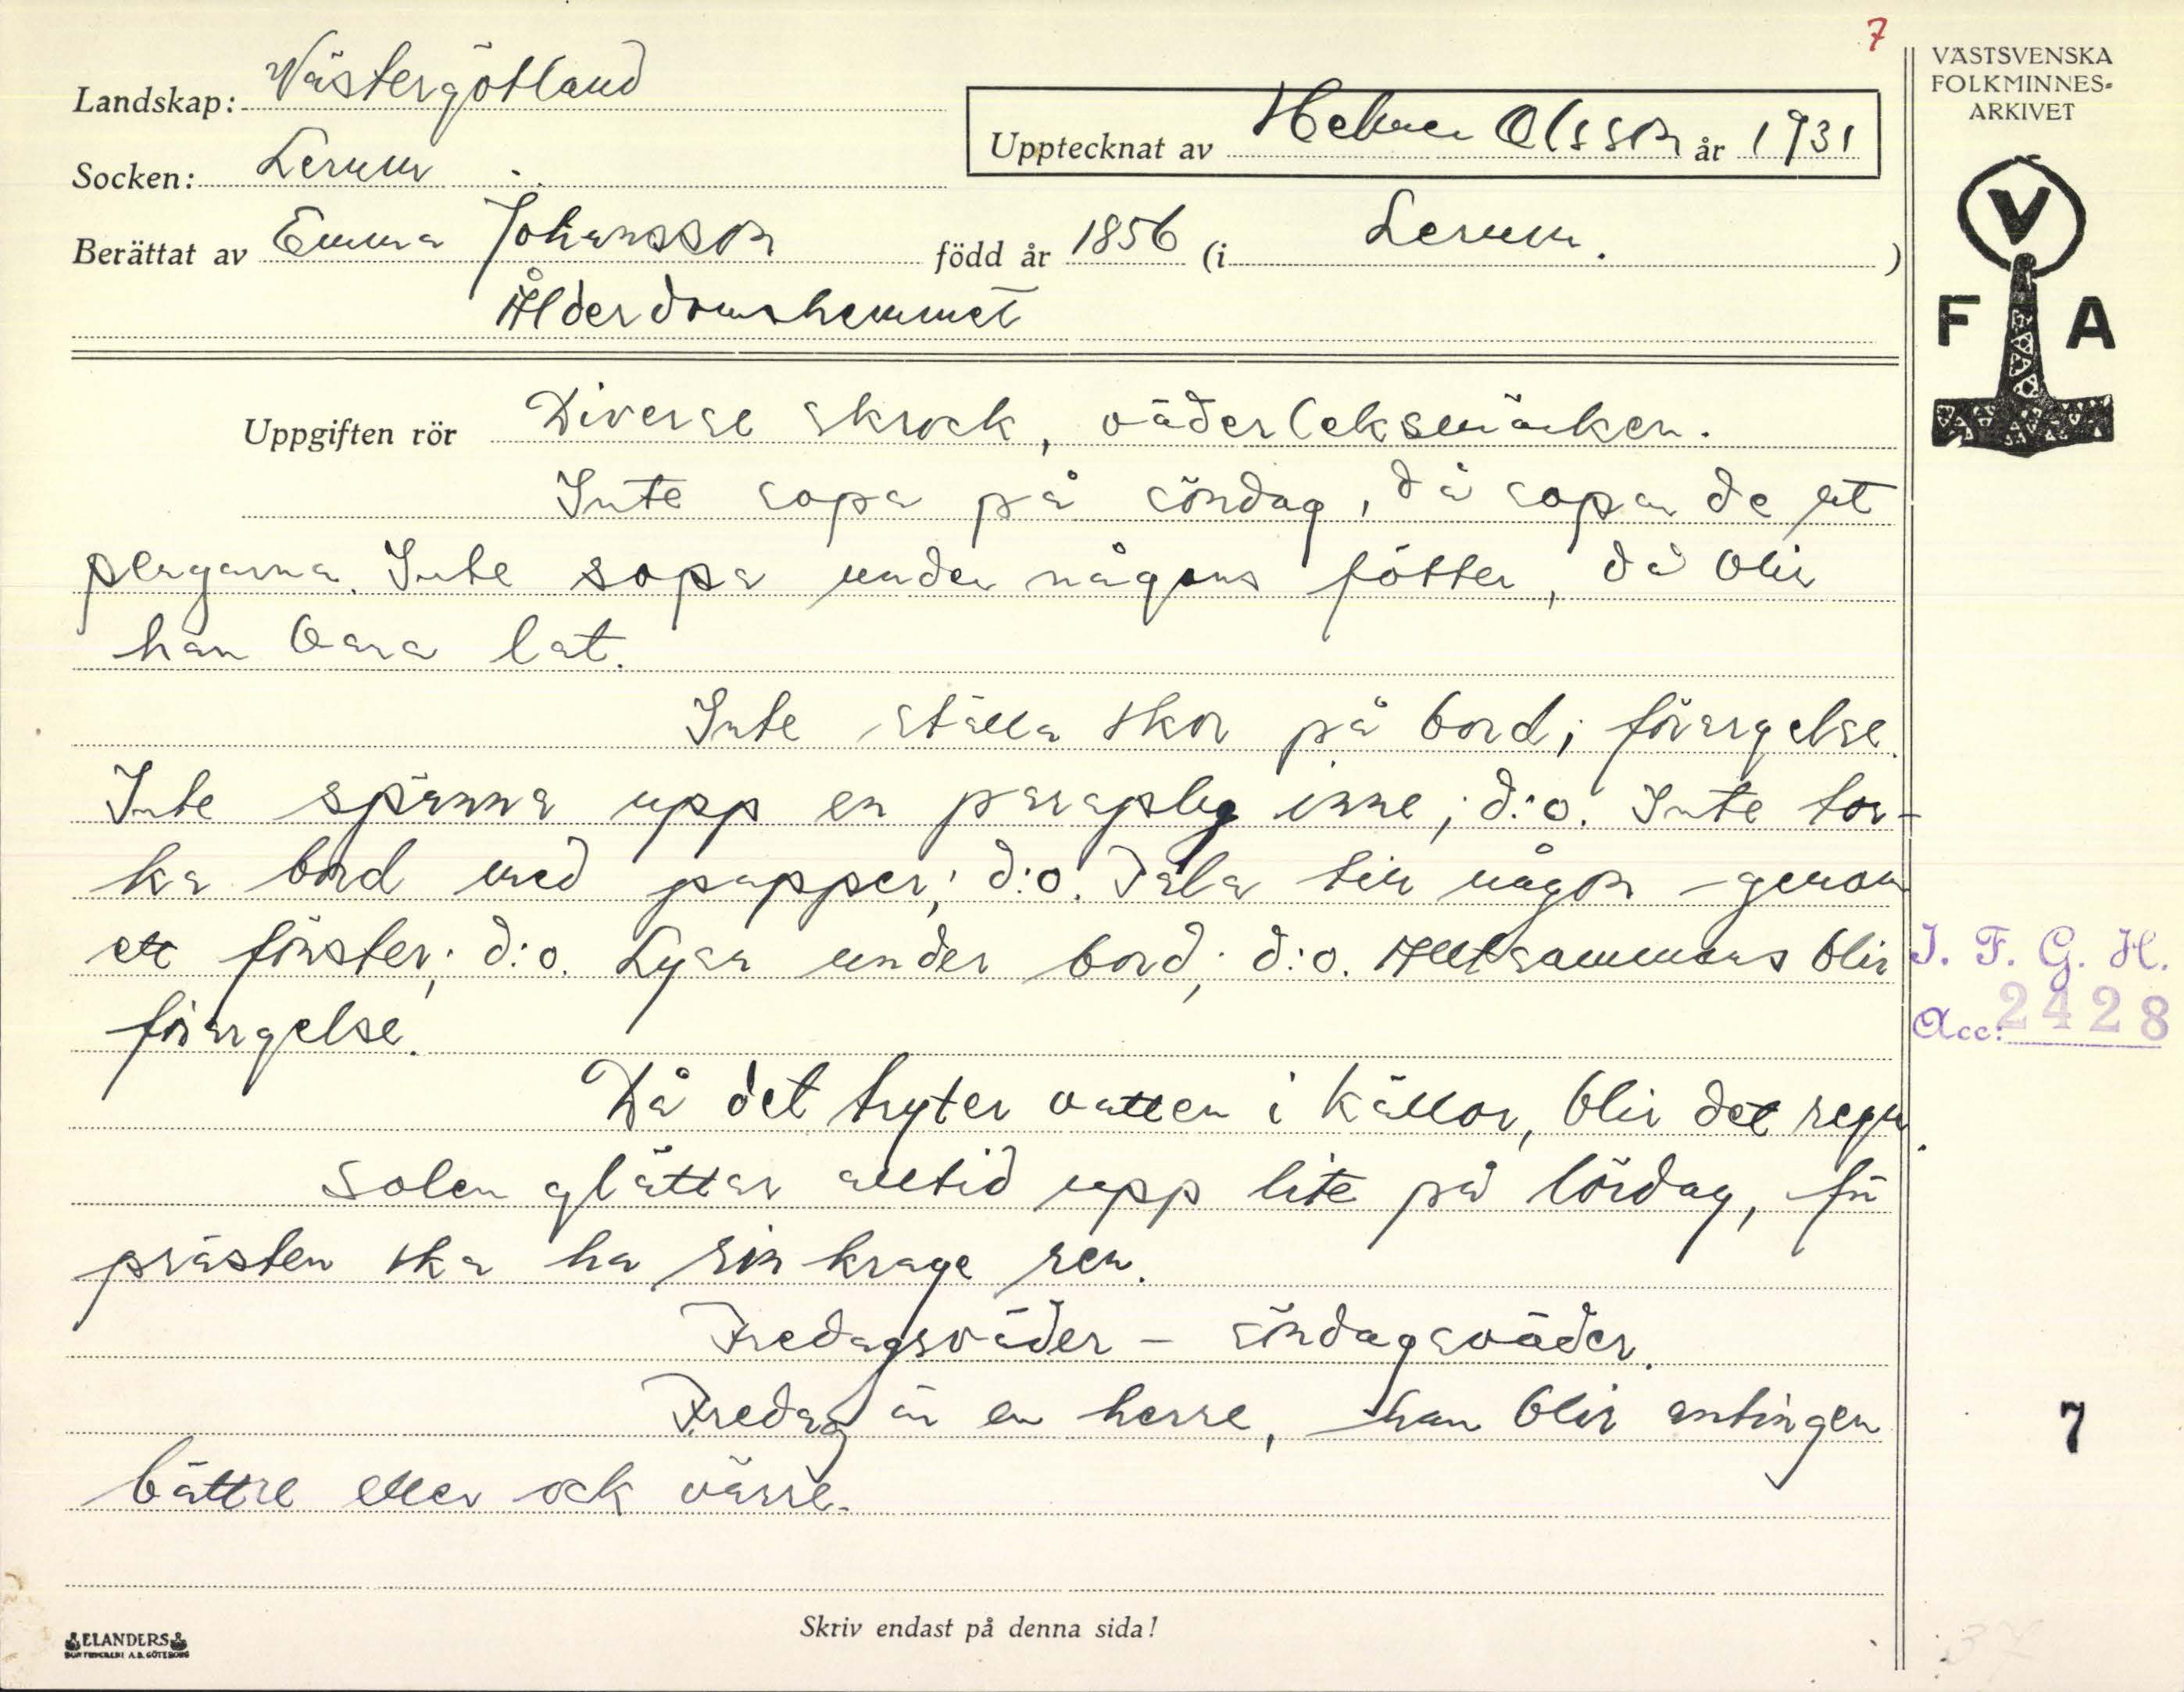 7
VÄSTSVENSKA
FOLKMINNES-
ARKIVET
Landskap: Västergötland
Upptecknat av Helmer Olsson år 1931
Socken: Lerum
Berättat av Emma Johansson född år 1856 (i Lerum. )
Ålderdomshemmet
V
F A
Uppgiften rör Diverse skrock, väderleksmärken.
Inte sopa på söndag, då sopar de ut
pengarna. Inte sopa under någons fötter, då blir
han bara lat.
Inte ställa skor på bord; förargelse.
Inte spänna upp en paraply inne; d:o. Inte tor-
ka bord med papper; d:o. Tala till någon genom
ett fönster; d:o. Lysa under bord; d:o. Alltsammans blir
förargelse.
I. F. G. H.
Acc: 2428
Då det tryter vatten i källor, blir det regn.
Solen glättar alltid upp lite på lördag, för
prästen ska ha sin krage ren.
Fredagsväder – söndagsväder.
Fredag är en herre, han blir antingen
bättre eller ock värre.
7
Skriv endast på denna sida!
ELANDERS
BOKTRYCKERI A.B. GÖTEBORG